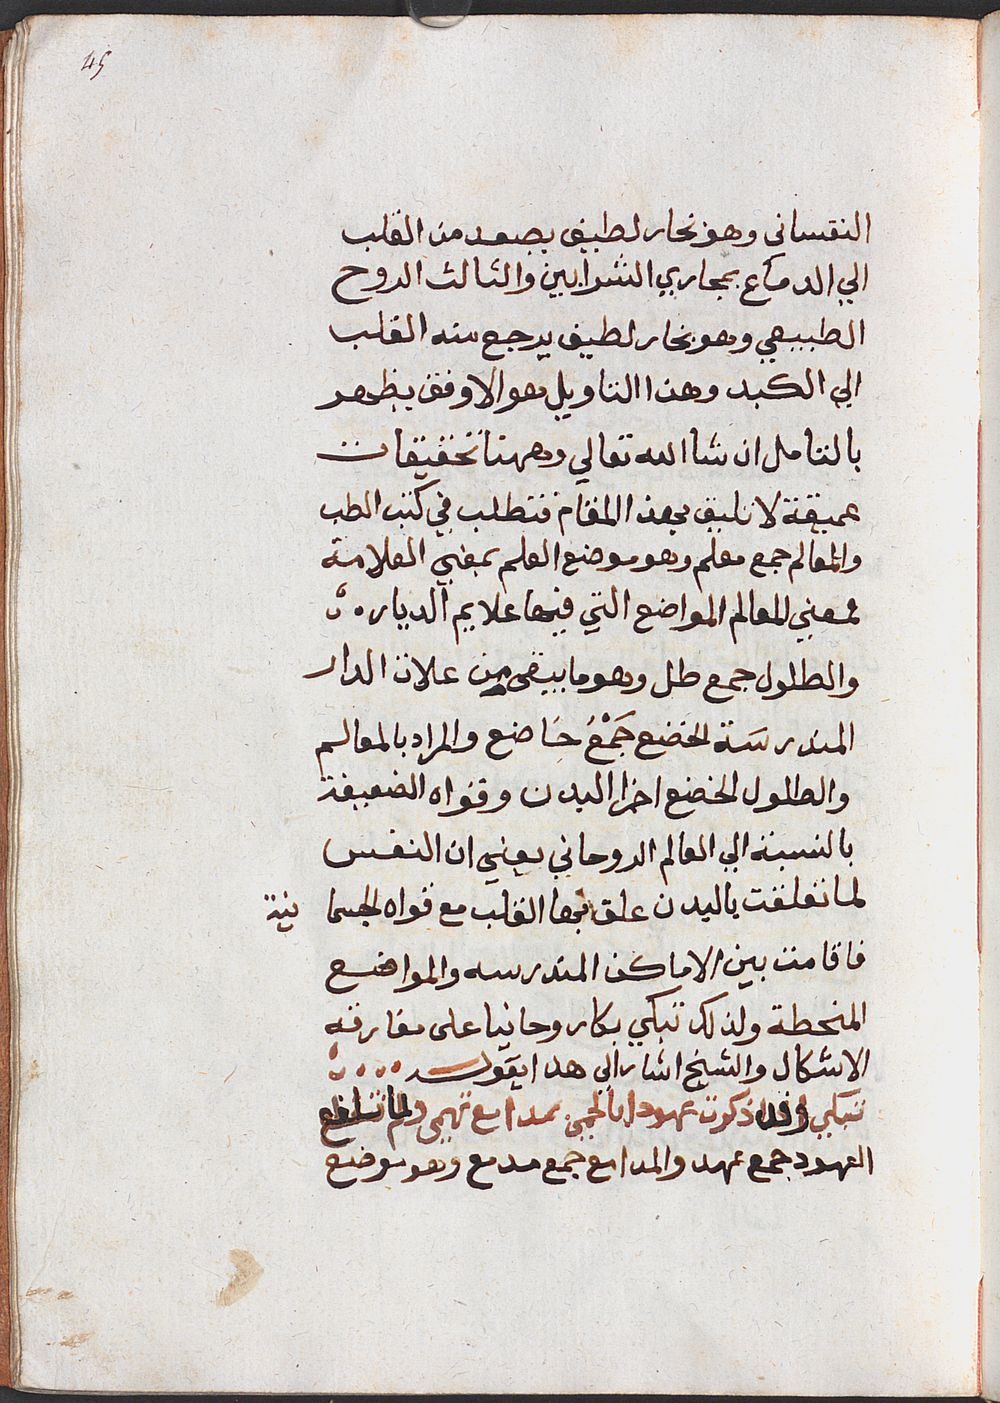 45
النفساني وهو بخار لطيف يصعد من القلب
الي الدماغ بمجاري الشرايين والثالث الروح
الطبيعي وهو بخار لطيف يرجع منه القلب
الي الكبد وهذا التاويل هو الاوفق يظهر
بالتامل ان شا الله تعالي وههنا تحقيقات
عميقة لا تليق بهذا المقام فتطلب في كتب الطب
والمعالم جمع معلم وهو موضع العلم بمعني العلامة
فمعني المعالم المواضع التي فيها علايم الديار ه
والطلول جمع طلل وهو ما يبقي من علات الدار
المندرسة الخضع جَمْعُ خَاضع والمراد بالمعالم
والطلول الخضع اجزا البدن وقواه الضعيفة
بالنسبة الي العالم الروحاني يعني ان النفس
لما تعلقت بالبدن علق بها القلب مع قواه الجسما نية
فاقامت بين الاماكن المندرسه والمواضع
المنحطة ولذلك تبكي بكا روحانيا على مفارقه
الاشكال والشيخ اشار الي هذا بقوله
تبكي وقد ذكرت عهودا بالحمي بمدامع تهمي ولما تقلع
العهود جمع عهد والمدامع جمع مدمع وهو موضع